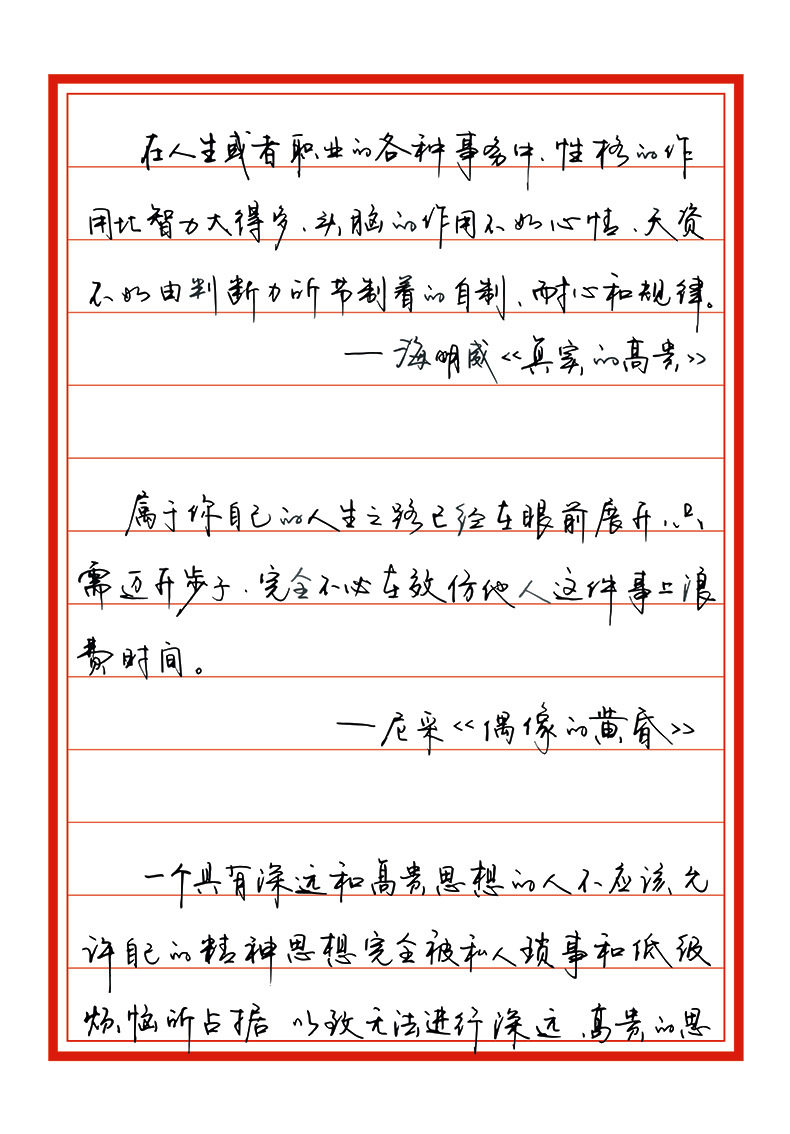 在人生或者职业的各种事务中、性格的作
用比智力大得多、头脑的作用不如心情、天资
不如由判断力所节制着的自制、耐心和规律。
——海明威《真实的高贵》
属于你自己的人生之路已经在眼前展开、只
需迈开步子、完全不必在效仿他人这件事上浪
费时间。
——尼采《偶像的黄昏》
一个具有深远和高贵思想的人不应该允
许自己的精神思想完全被私人琐事和低级
烦恼所占据 以致无法进行深远、高贵的思